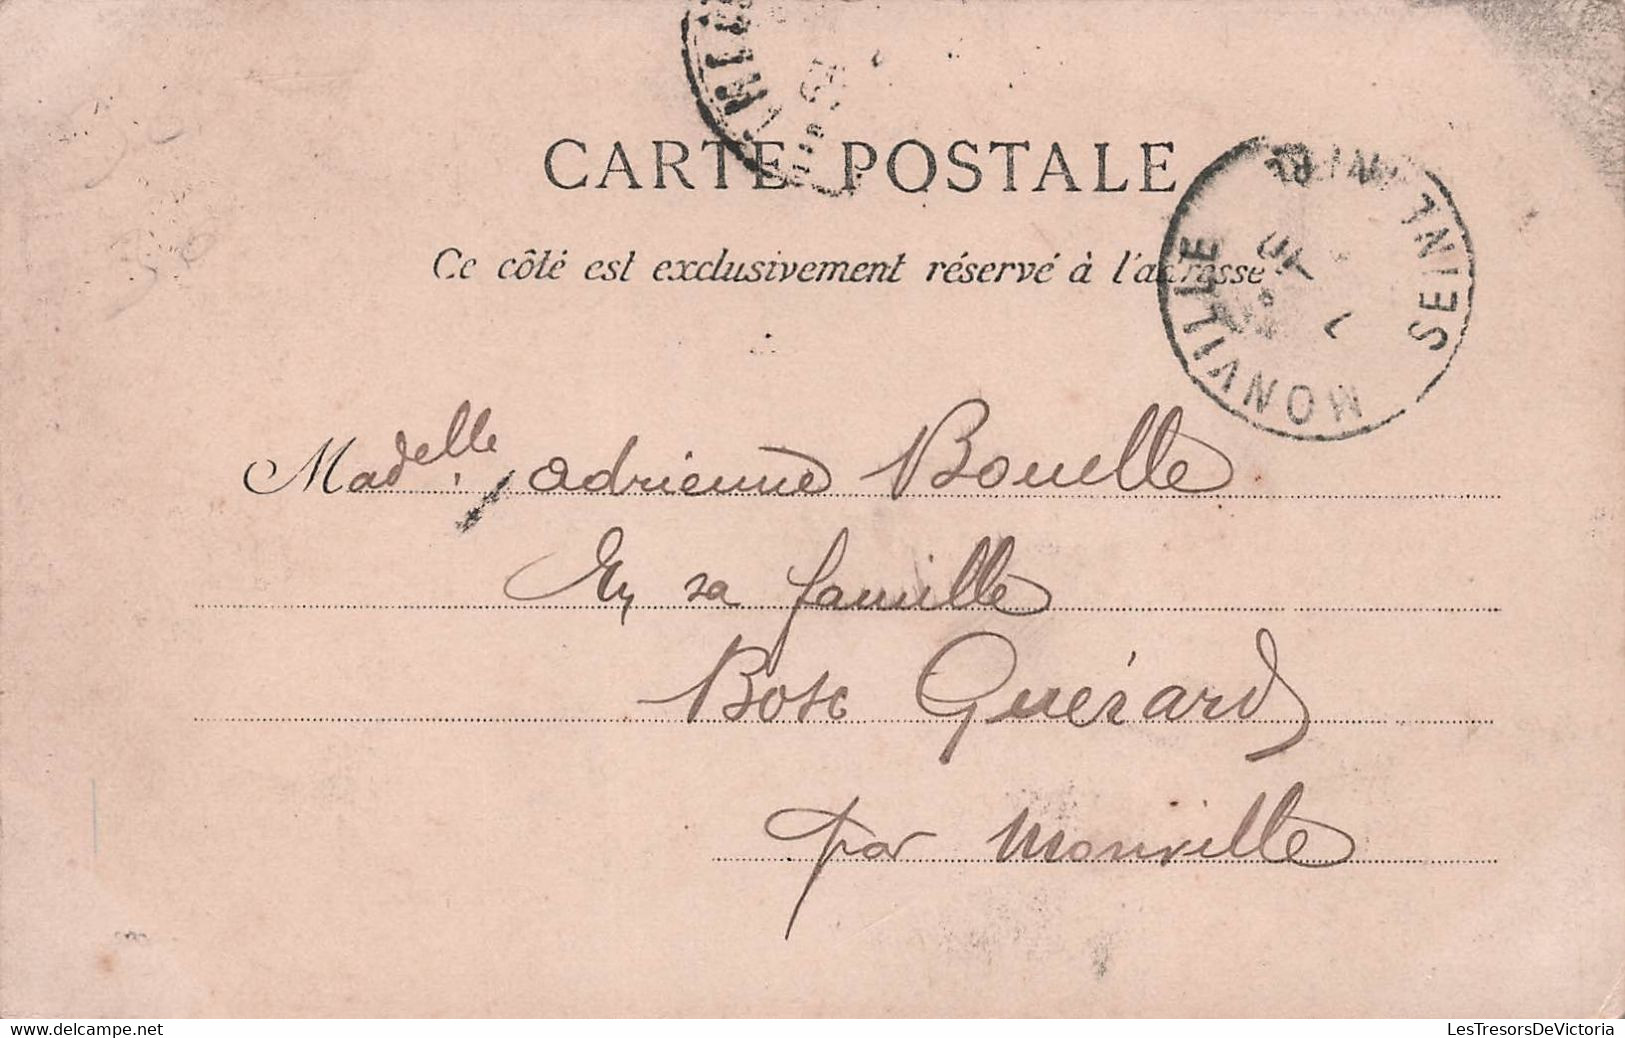 CARTE POSTALE
Ce côté est exclusivement réservé à l'adresse
MONVILLE
SEINE INFRE
7
Madelle adrienne Bouelle
En sa famille
Bosc Guérard
par Monville
delcampe.net
LesTresorsDeVictoria